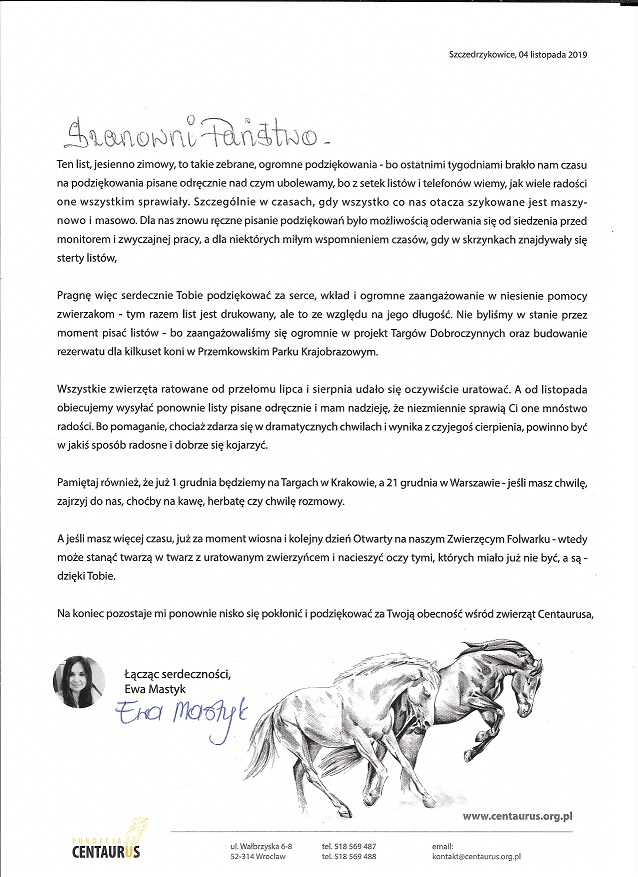 Szczedrzykowice, 04 listopada 2019
Szanowni Państwo -
Ten list, jesienno zimowy, to takie zebrane, ogromne podziękowania - bo ostatnimi tygodniami brakło nam czasu
na podziękowania pisane odręcznie nad czym ubolewamy, bo z setek listów i telefonów wiemy, jak wiele radości
one wszystkim sprawiały. Szczególnie w czasach, gdy wszystko co nas otacza szykowane jest maszy-
nowo i masowo. Dla nas znowu ręczne pisanie podziękowań było możliwością oderwania się od siedzenia przed
monitorem i zwyczajnej pracy, a dla niektórych miłym wspomnieniem czasów, gdy w skrzynkach znajdywały się
sterty listów,
Pragnę więc serdecznie Tobie podziękować za serce, wkład i ogromne zaangażowanie w niesienie pomocy
zwierzakom - tym razem list jest drukowany, ale to ze względu na jego długość. Nie byliśmy w stanie przez
moment pisać listów - bo zaangażowaliśmy się ogromnie w projekt Targów Dobroczynnych oraz budowanie
rezerwatu dla kilkuset koni w Przemkowskim Parku Krajobrazowym.
Wszystkie zwierzęta ratowane od przełomu lipca i sierpnia udało się oczywiście uratować. A od listopada
obiecujemy wysyłać ponownie listy pisane odręcznie i mam nadzieję, że niezmiennie sprawią Ci one mnóstwo
radości. Bo pomaganie, chociaż zdarza się w dramatycznych chwilach i wynika z czyjegoś cierpienia, powinno być
w jakiś sposób radosne i dobrze się kojarzyć.
Pamiętaj również, że już 1 grudnia będziemy na Targach w Krakowie, a 21 grudnia w Warszawie - jeśli masz chwilę,
zajrzyj do nas, choćby na kawę, herbatę czy chwilę rozmowy.
A jeśli masz więcej czasu, już za moment wiosna i kolejny dzień Otwarty na naszym Zwierzęcym Folwarku - wtedy
może stanąć twarzą w twarz z uratowanym zwierzyńcem i nacieszyć oczy tymi, których miało już nie być, a są -
dzięki Tobie.
Na koniec pozostaje mi ponownie nisko się pokłonić i podziękować za Twoją obecność wśród zwierząt Centaurusa,
Łącząc serdeczności,
Ewa Mastyk
Ewa Mastyk
www.centaurus.org.pl
FUNDACJA
CENTAURUS
ul. Wałbrzyska 6-8
52-314 Wrocław
tel. 518 569 487
tel. 518 569 488
email:
kontakt@centaurus.org.pl